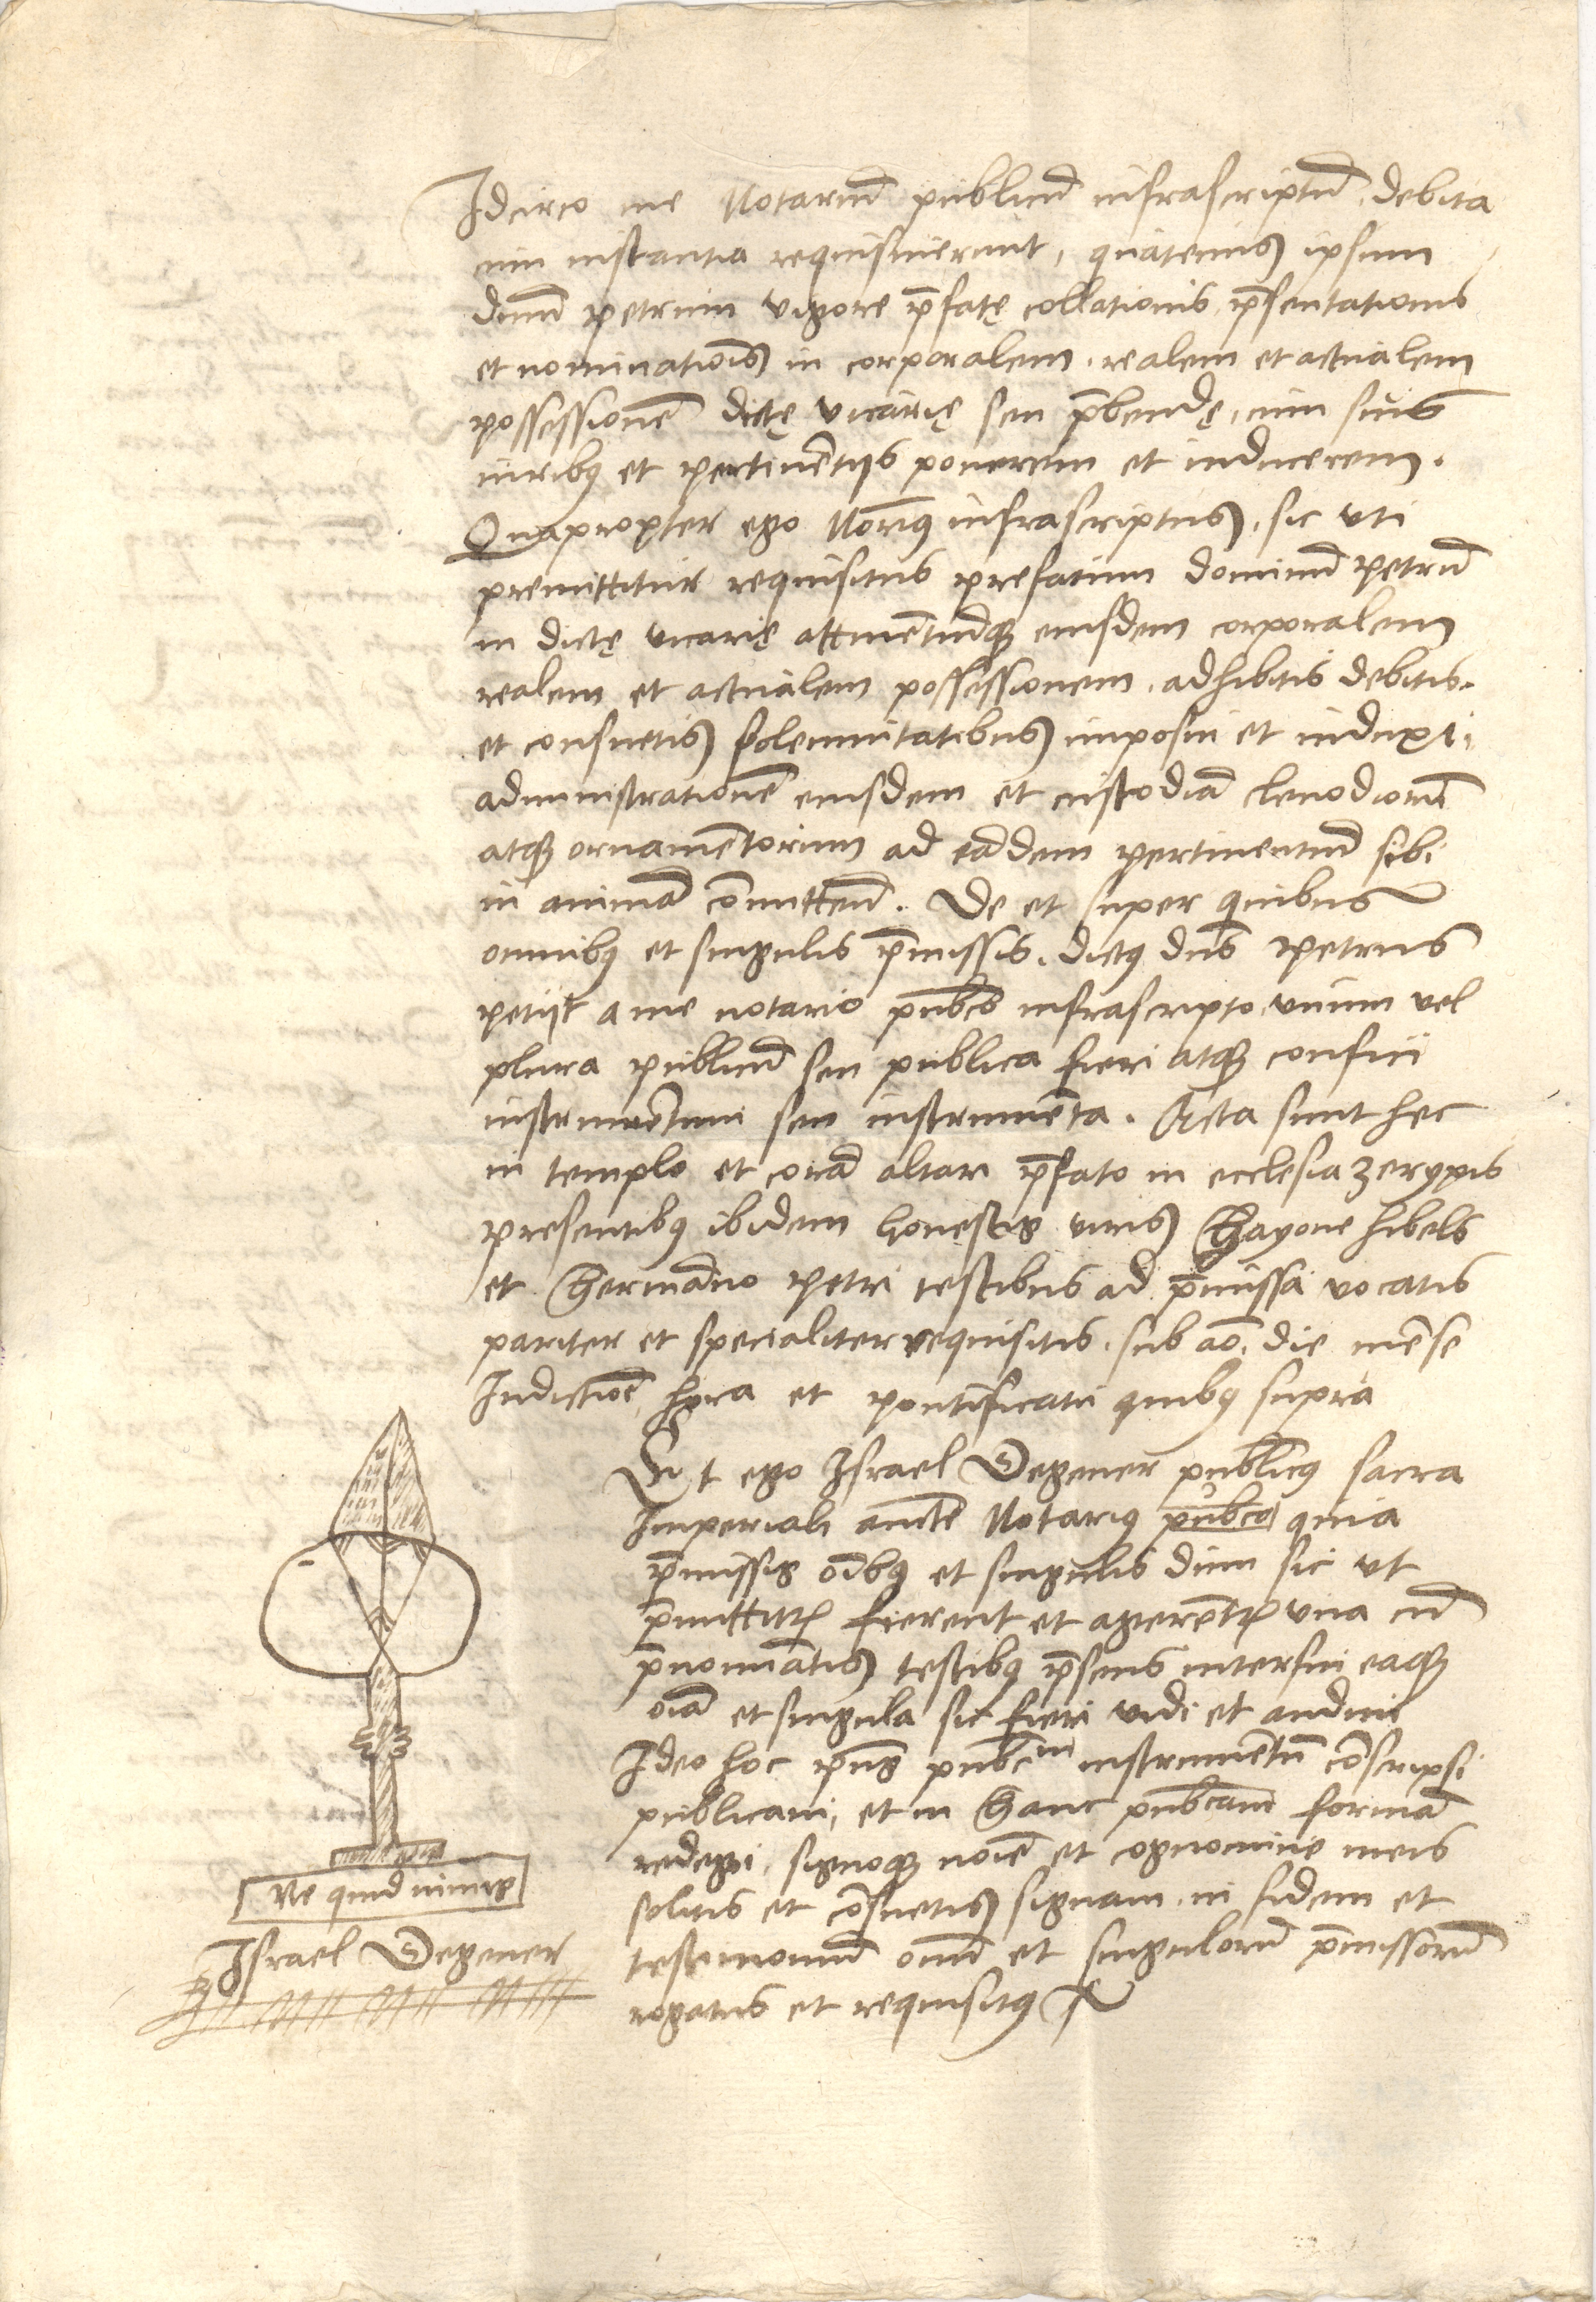 Idcirco me Notariũ publicũ infrascriptũ, debita
cum instantia requisiuerunt, quatenus ipsum
dnũm petrum vigore p̄fatę collationis p̄sentationis
et nominatiõis in corporalem, realem et actualem
possessionẽ dictę vicarię seu p̄bendę, cum suis
iuribꝰ et pertinẽtijs ponerem et inducerem.
Quapropter ego Norĩꝰ infrascriptus, sic vti
premittitur requisitus prefatum dominũ petrũ
in dictę vicarię attinẽtiũqꝫ eiusdem corporalem
realem et actualem possessionem, adhibitis debitis
et consuetis solemnitatibus imposui et induxi,
administrationẽ eiusdem et custodiã clenodiorũ
atqꝫ ornamẽtorum ad eãdem pertinentiũ sibi
in animã cõmittẽũ. De et super quibus
omnibꝰ et singulis p̄missis, dictꝰ dñs Petrus
petijt a me notario pubco infrascripto, vnum vel
plura publicũ seu publica fieri atqꝫ confici
instrumẽtum seu instrumẽta. Acta sunt hec
in templo et corã altari p̄fato in ecclesia zerypis
presentibꝰ ibidem honestis viris Hayone hibels
et Hermãno Petri testibus ad p̄missa vocatis
pariter et specialiter requisitis, sub aõ, die mẽse
Indictiõe, hora et pontificatu quibꝰ supra
Et ego Israel Degener publicꝰ sacra
Imperiali aucte Notariꝰ pubco quia
p̄missis oĩbꝰ et singulis dum sic vt
p̄mittitr̃ fierent et agerẽtr̃ vna cũ
p̄nomiãtis testibꝰ p̄sens interfui eaqꝫ
oĩa et singula sic fieri vidi et audiui
Ideo hoc p̄ñs pubcᵐ instrumẽtũ cõscripsi
publicaui, et in hanc pubcam formã
redegi, signoqꝫ noĩe et cognomine meis
solitis et cõsuetis signaui, in fidem et
testimoniũ oniũ et singulorũ p̄missorũ
rogatus et requisitꝰ
Ne quid nimis
Israel Degener